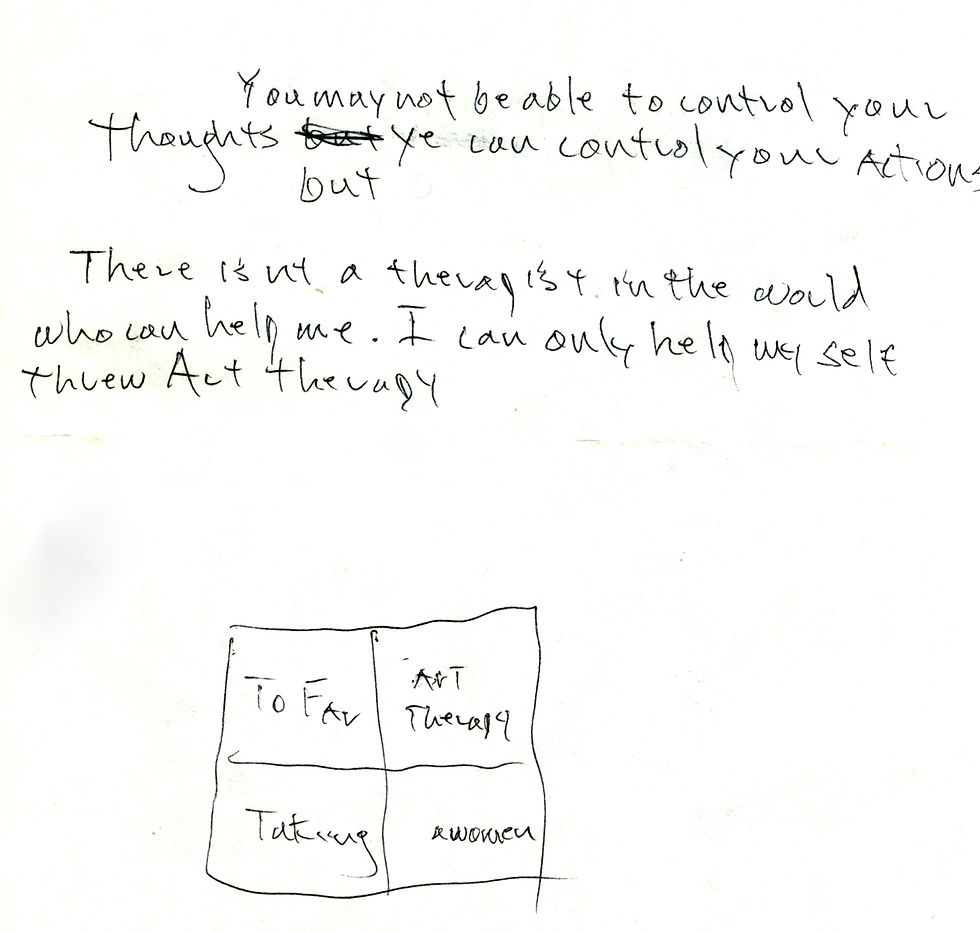 You may not be able to control your
thoughts but Ye can control your Actions
but
There isnt a therapist in the world
who can help me. I can only help my self
threw Art therapy
To Far
Art
Therapy
Taking
a women